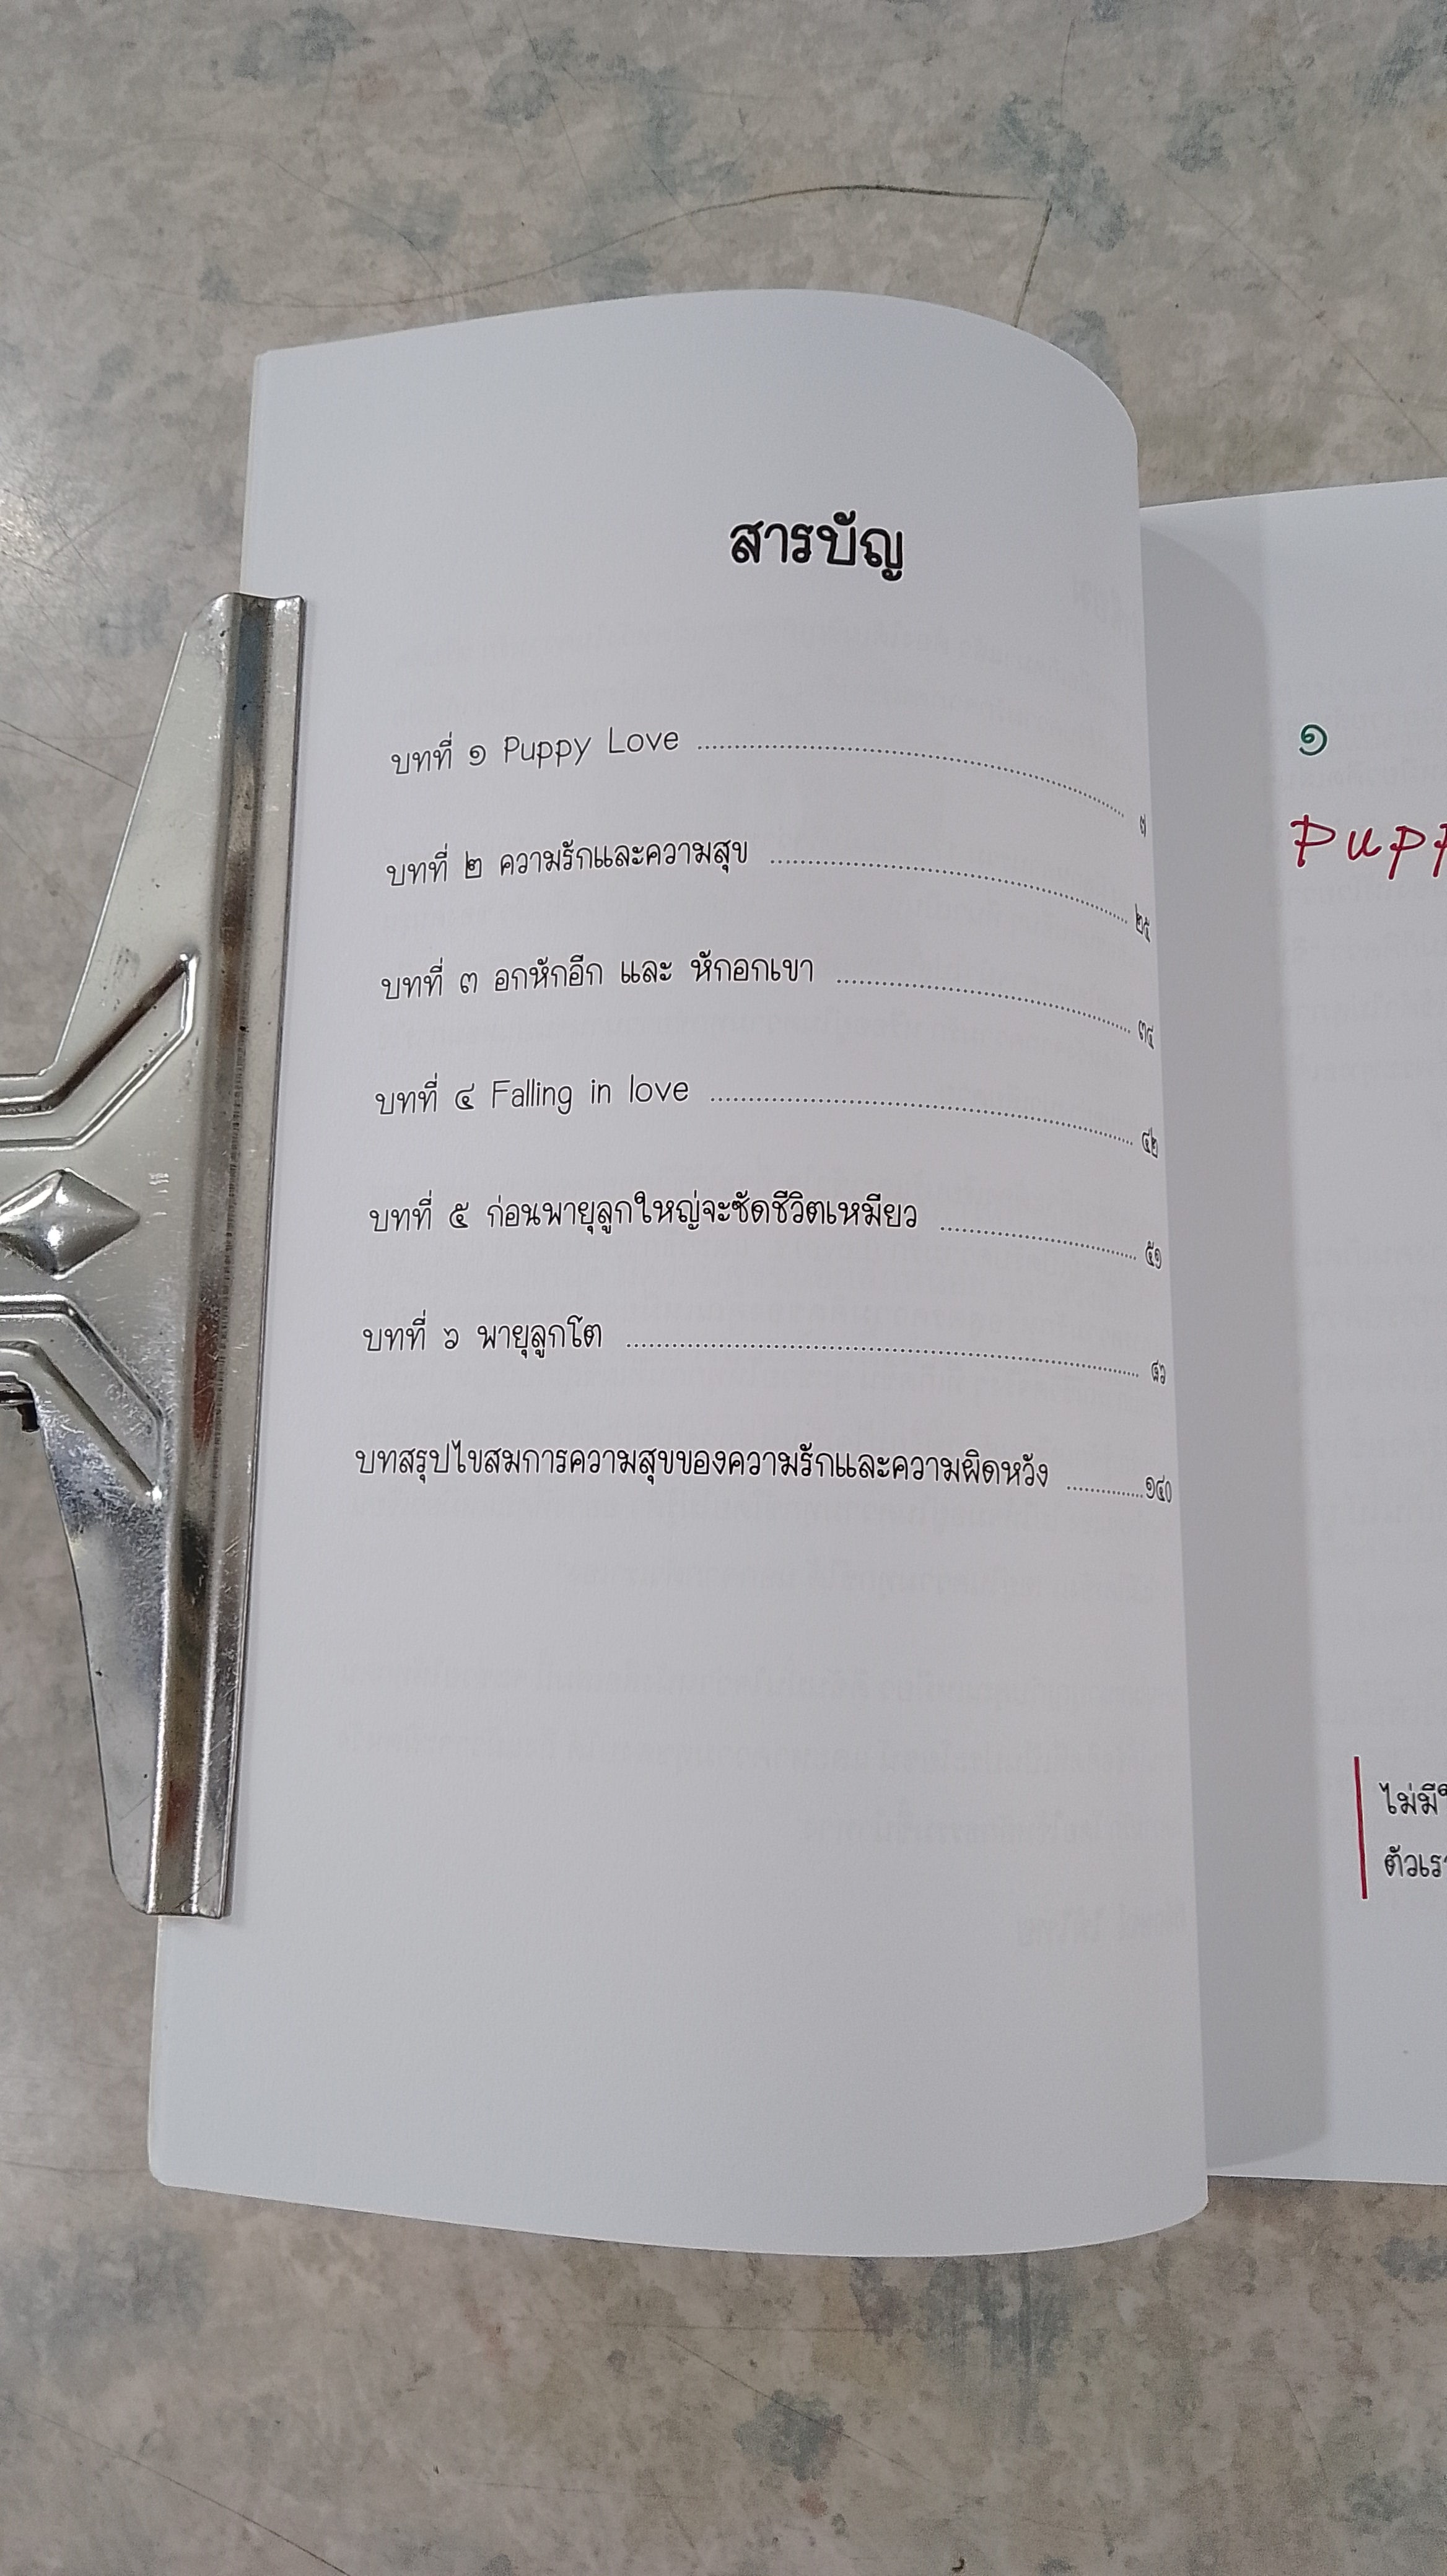 สารบัญ
บทที่ ๑ Puppy Love ........................ ๗
บทที่ ๒ ความรักและความสุข ........................ ๒๕
บทที่ ๓ อกหักอีก และ หักอกเขา ........................ ๓๔
บทที่ ๔ Falling in love ........................ ๔๒
บทที่ ๕ ก่อนพายุลูกใหญ่จะซัดชีวิตเหมียว ........................ ๕๑
บทที่ ๖ พายุลูกโต ........................
บทสรุปไขสมการความสุขของความรักและความผิดหวัง ............๑๔๐
๑
Pupp
ไม่มี
ตัวเรา